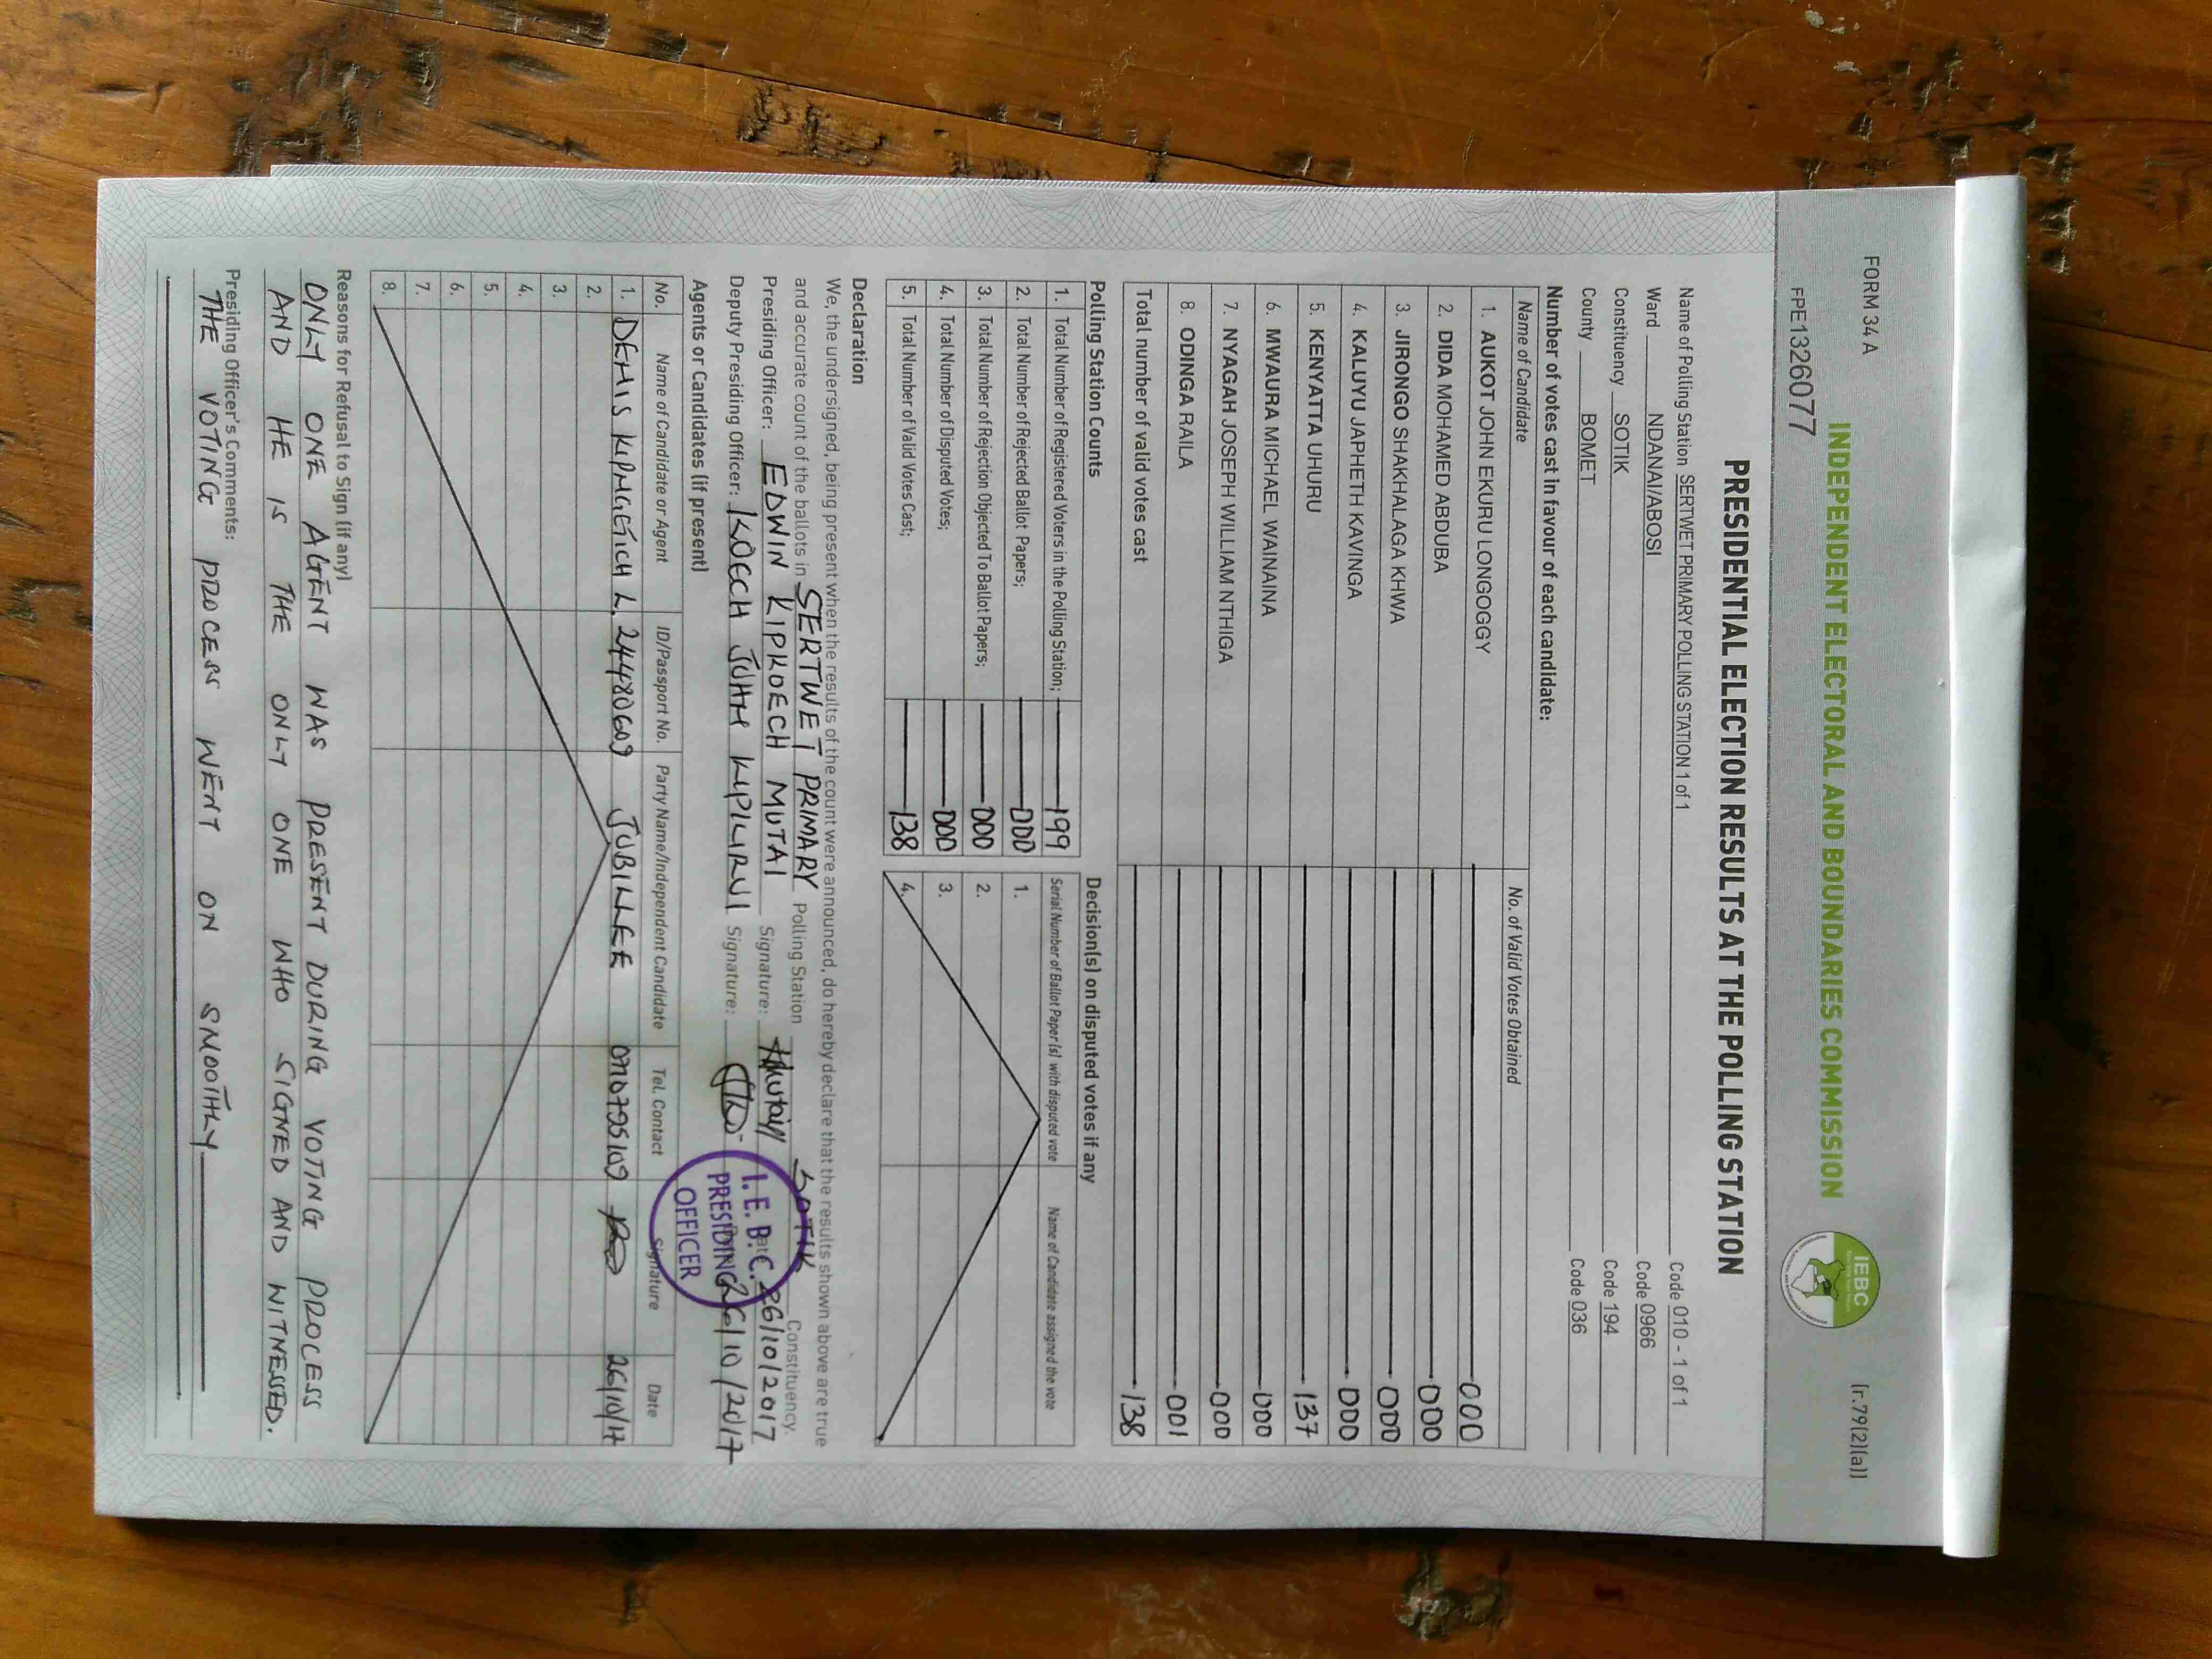 FORM 34 A
(r.79(2)(a))
INDEPENDENT ELECTORAL AND BOUNDARIES COMMISSION
IEBC
FPE1326077
PRESIDENTIAL ELECTION RESULTS AT THE POLLING STATION
Name of Polling Station SERTWET PRIMARY POLLING STATION 1 of 1 Code 010 - 1 of 1
Ward NDANAI/ABOSI Code 0966
Constituency SOTIK Code 194
County BOMET Code 036
Number of votes cast in favour of each candidate:
Name of Candidate No. of Valid Votes Obtained
1. AUKOT JOHN EKURU LONGOGGY 000
2. DIDA MOHAMED ABDUBA 000
3. JIRONGO SHAKHALAGA KHWA 000
4. KALUYU JAPHETH KAVINGA 000
5. KENYATTA UHURU 137
6. MWAURA MICHAEL WAINAINA 000
7. NYAGAH JOSEPH WILLIAM NTHIGA 000
8. ODINGA RAILA 001
Total number of valid votes cast 138
Polling Station Counts
1. Total Number of Registered Voters in the Polling Station; 199
2. Total Number of Rejected Ballot Papers; 000
3. Total Number of Rejection Objected To Ballot Papers; 000
4. Total Number of Disputed Votes; 000
5. Total Number of Valid Votes Cast; 138
Decision(s) on disputed votes if any
Serial Number of Ballot Paper (s) with disputed vote Name of Candidate assigned the vote
1.
2.
3.
4.
Declaration
We, the undersigned, being present when the results of the count were announced, do hereby declare that the results shown above are true
and accurate count of the ballots in SERTWET PRIMARY Polling Station SOTIK Constituency.
Presiding Officer: EDWIN KIPKOECH MUTAI Signature: Date 26/10/2017
Deputy Presiding Officer: KOECH JOHN KIPLIRUI Signature: 26/10/2017
I.E.B.C.
PRESIDING
OFFICER
Agents or Candidates (if present)
No. Name of Candidate or Agent ID/Passport No. Party Name/Independent Candidate Tel. Contact Signature Date
1. DENIS KIPNGETICH L. 24480609 JUBILEE 0707795109 26/10/17
2.
3.
4.
5.
6.
7.
8.
Reasons for Refusal to Sign (if any)
ONLY ONE AGENT WAS PRESENT DURING VOTING PROCESS
AND HE IS THE ONLY ONE WHO SIGNED AND WITNESSED.
Presiding Officer's Comments:
THE VOTING PROCESS WENT ON SMOOTHLY